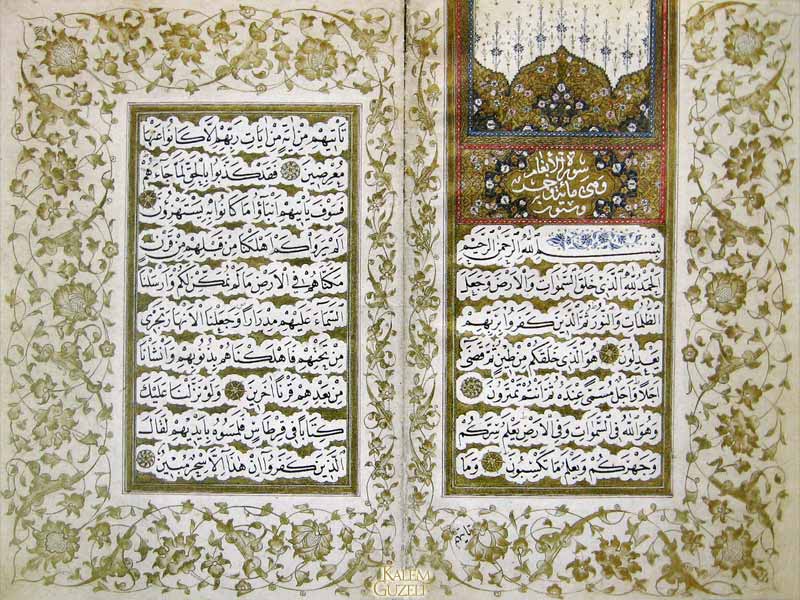 سورة الانعام
وهى مائة
بسم الله الرحمن الرحيم
الحمد لله الذى خلق السموات والارض وجعل
الظلمات والنور ثم الذين كفروا بربهم
يعدلون هو الذى خلقكم من طين ثم قضى
اجلا واجل مسمى عنده ثم انتم تمترون
وهو الله فى السموات وفى الارض يعلم سركم
وجهركم ويعلم ما تكسبون وما
تأتيهم
تأتيهم من اية من ايات ربهم الا كانوا عنها
معرضين فقد كذبوا بالحق لما جاءهم
فسوف يأتيهم انباؤا ما كانوا به يستهزؤن
الم يروا كم اهلكنا من قبلهم من قرن
مكناهم فى الارض ما لم نمكن لكم وارسلنا
السماء عليهم مدرارا وجعلنا الانهار تجرى
من تحتهم فاهلكناهم بذنوبهم وانشأنا
من بعدهم قرنا اخرين ولو نزلنا عليك
كتابا فى قرطاس فلمسوه بايديهم لقال
الذين كفروا ان هذا الا سحر مبين
KALEM
GÜZELİ